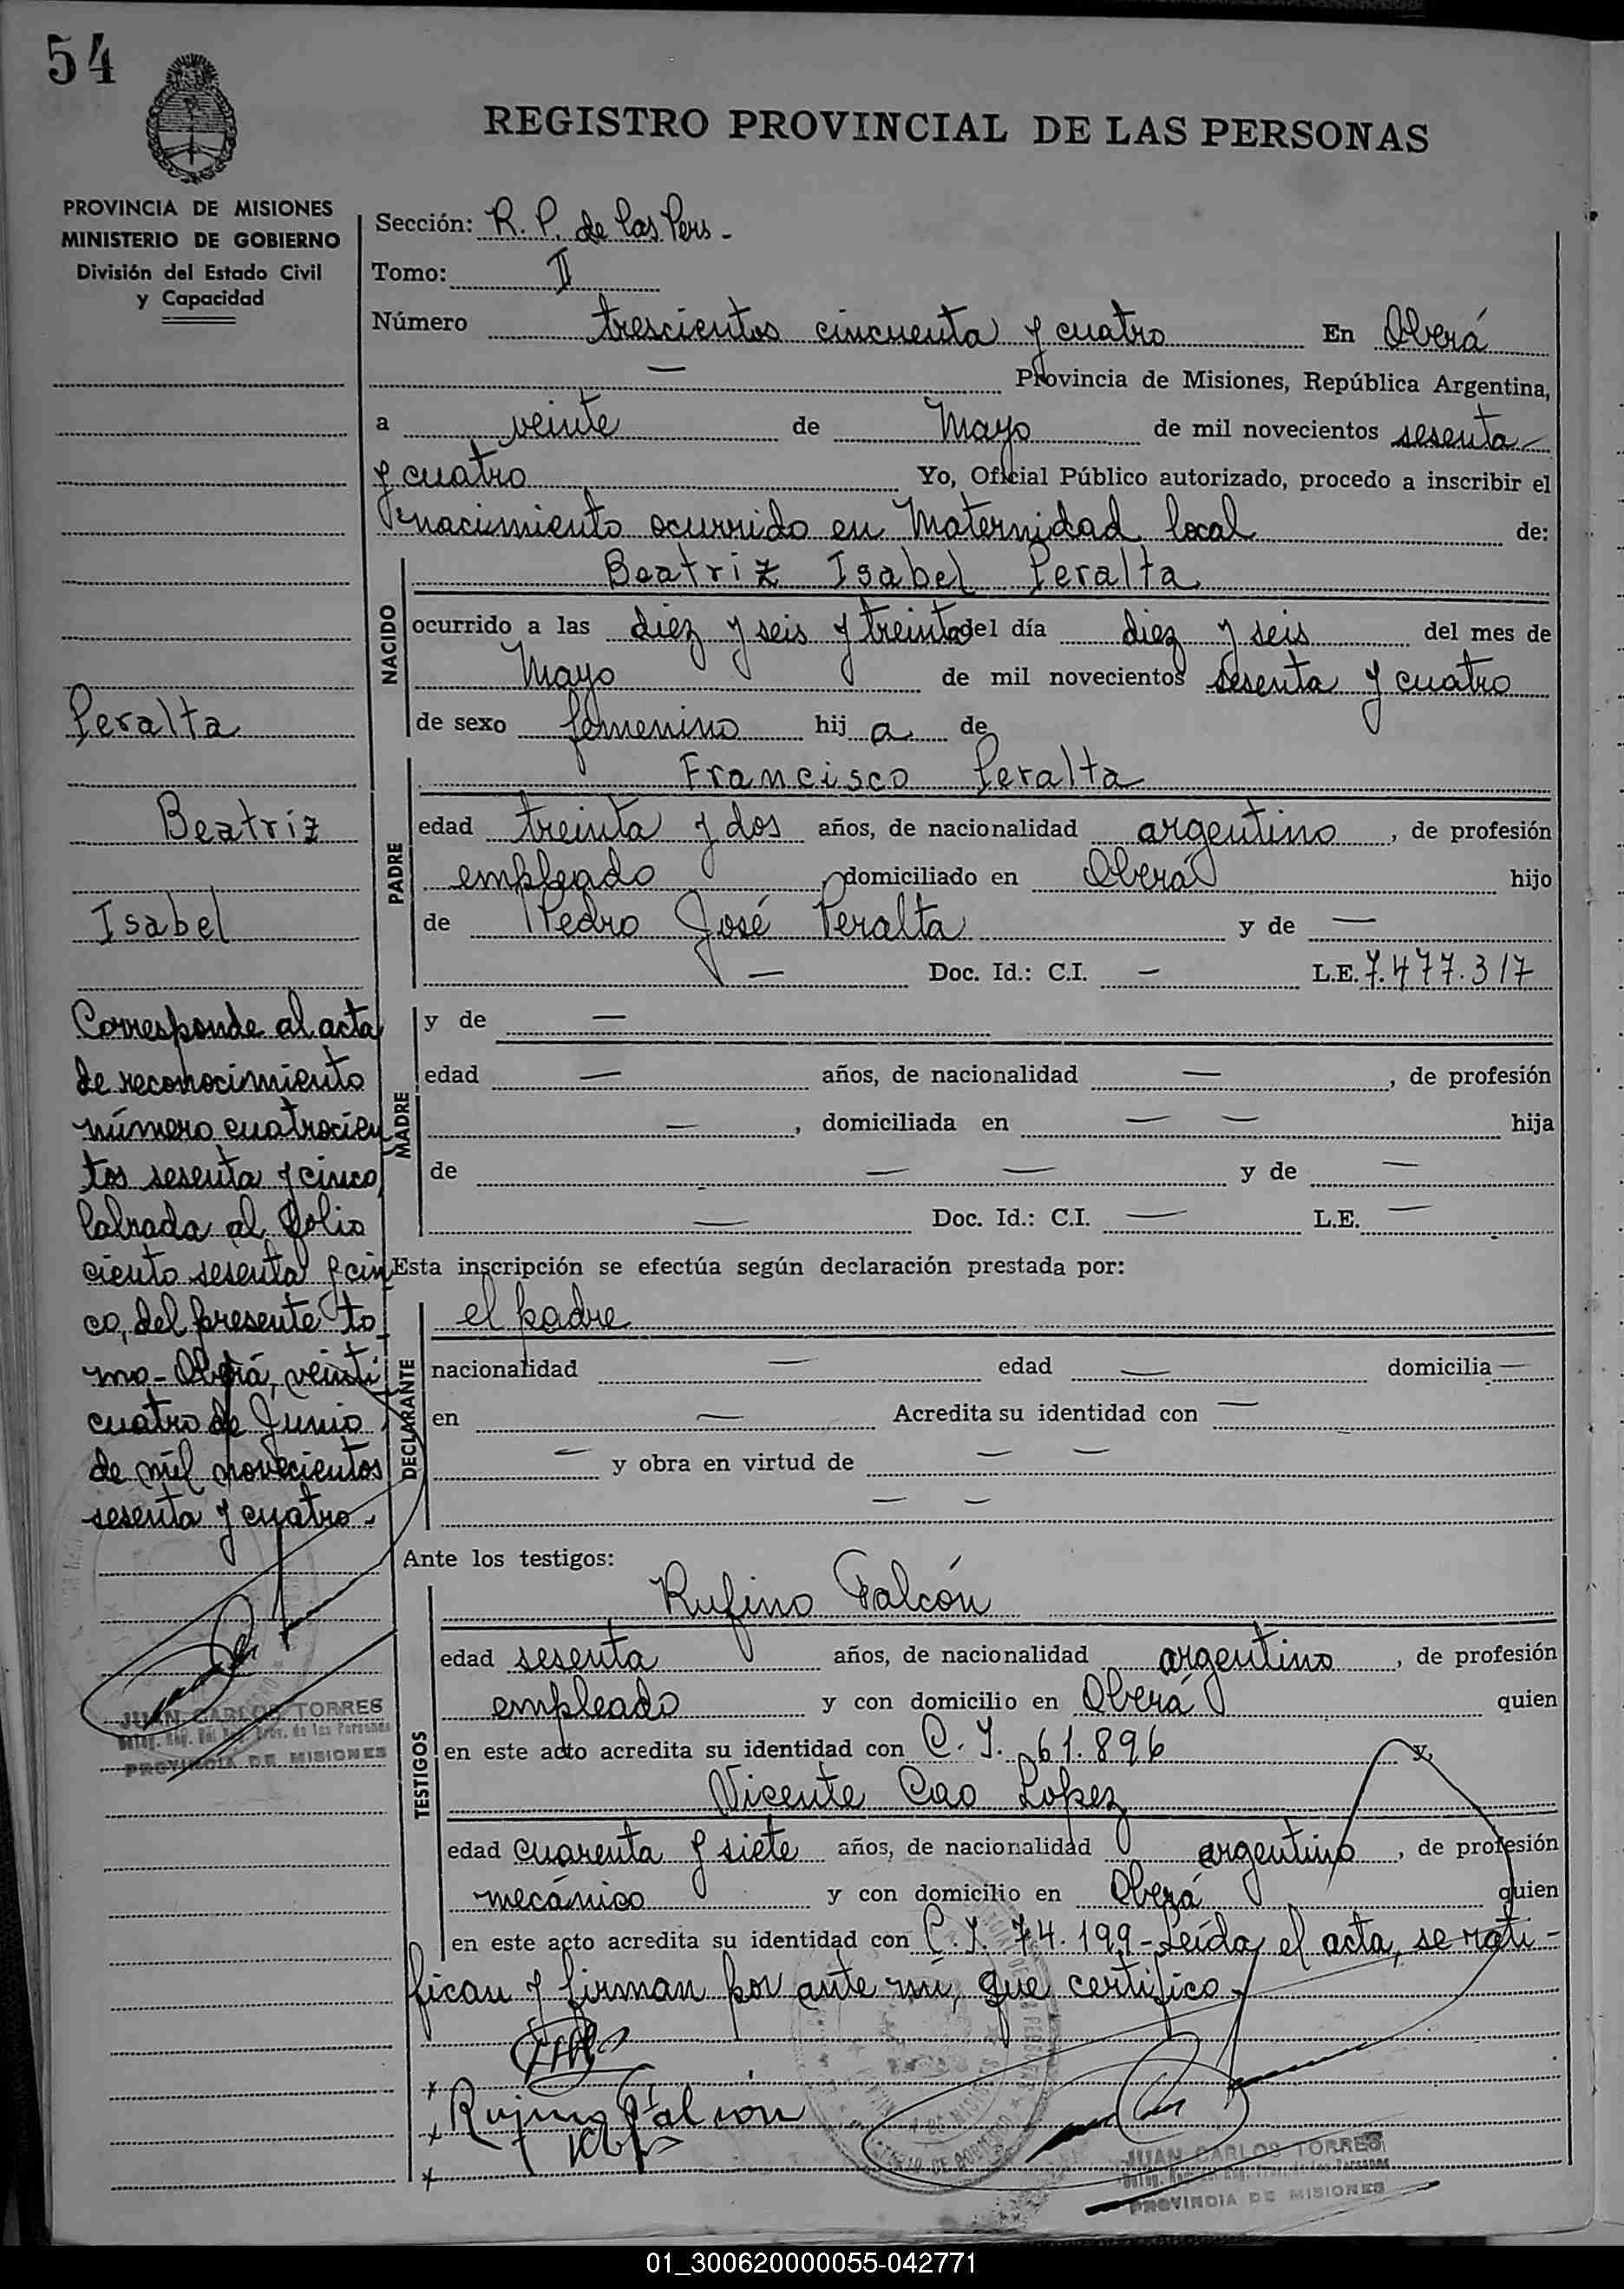 54
REGISTRO PROVINCIAL DE LAS PERSONAS
PROVINCIA DE MISIONES
MINISTERIO DE GOBIERNO
División del Estado Civil
y Capacidad
Sección: R. P. de las Pers -
Tomo: II
Número trescientos cincuenta y cuatro En Oberá
— Provincia de Misiones, República Argentina,
a veinte de Mayo de mil novecientos sesenta
y cuatro Yo, Oficial Público autorizado, procedo a inscribir el
nacimiento ocurrido en Maternidad local de:
NACIDO
Beatriz Isabel Peralta
ocurrido a las diez y seis y treinta del día diez y seis del mes de
Mayo de mil novecientos sesenta y cuatro
de sexo femenino hij a de
PADRE
Francisco Peralta
edad treinta y dos años, de nacionalidad argentino, de profesión
empleado domiciliado en Oberá hijo
de Pedro José Peralta y de —
— Doc. Id.: C.I. — L.E. 7.477.317
MADRE
y de —
edad — años, de nacionalidad —, de profesión
—, domiciliada en — — hija
de — — y de —
— Doc. Id.: C.I. — L.E. —
Esta inscripción se efectúa según declaración prestada por:
DECLARANTE
el padre
nacionalidad — edad — domicilia —
en — Acredita su identidad con —
— y obra en virtud de — —
— —
Ante los testigos:
TESTIGOS
Rufino Falcón
edad sesenta años, de nacionalidad argentino, de profesión
empleado y con domicilio en Oberá quien
en este acto acredita su identidad con C. I. 61.896 y,
Vicente Cao Lopez
edad cuarenta y siete años, de nacionalidad argentino, de profesión
mecánico y con domicilio en Oberá quien
en este acto acredita su identidad con C. I. 74.199 - Leída el acta, se rati-
fican y firman por ante mí, que certifico.
Rufino Falcón
JUAN CARLOS TORRES
PROVINCIA DE MISIONES
Peralta
Beatriz
Isabel
Corresponde al acta
de reconocimiento
número cuatrocien
tos sesenta y cinco
labrada al folio
ciento sesenta y cin
co, del presente to
mo - Oberá, veinti
cuatro de Junio
de mil novecientos
sesenta y cuatro -
JUAN CARLOS TORRES
Deleg. Reg. del Reg. Prov. de las Personas
PROVINCIA DE MISIONES
01_300620000055-042771